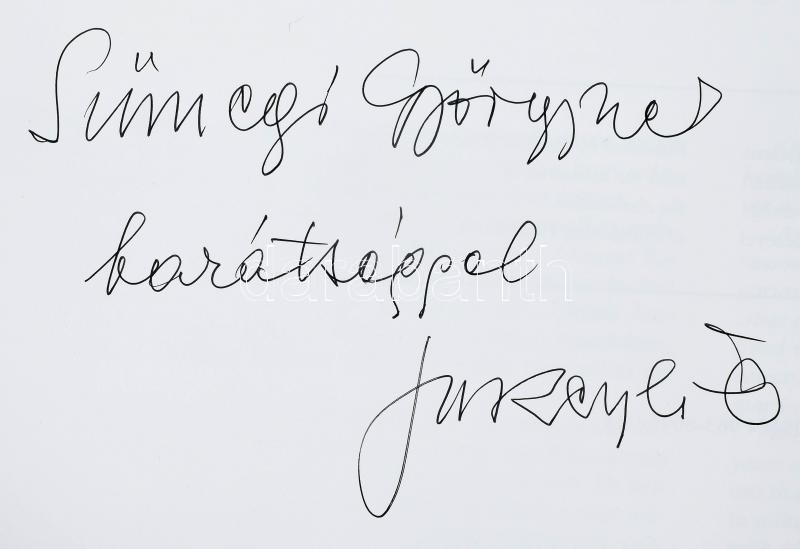 Sümegi Györgynek
barátsággal
darabanth